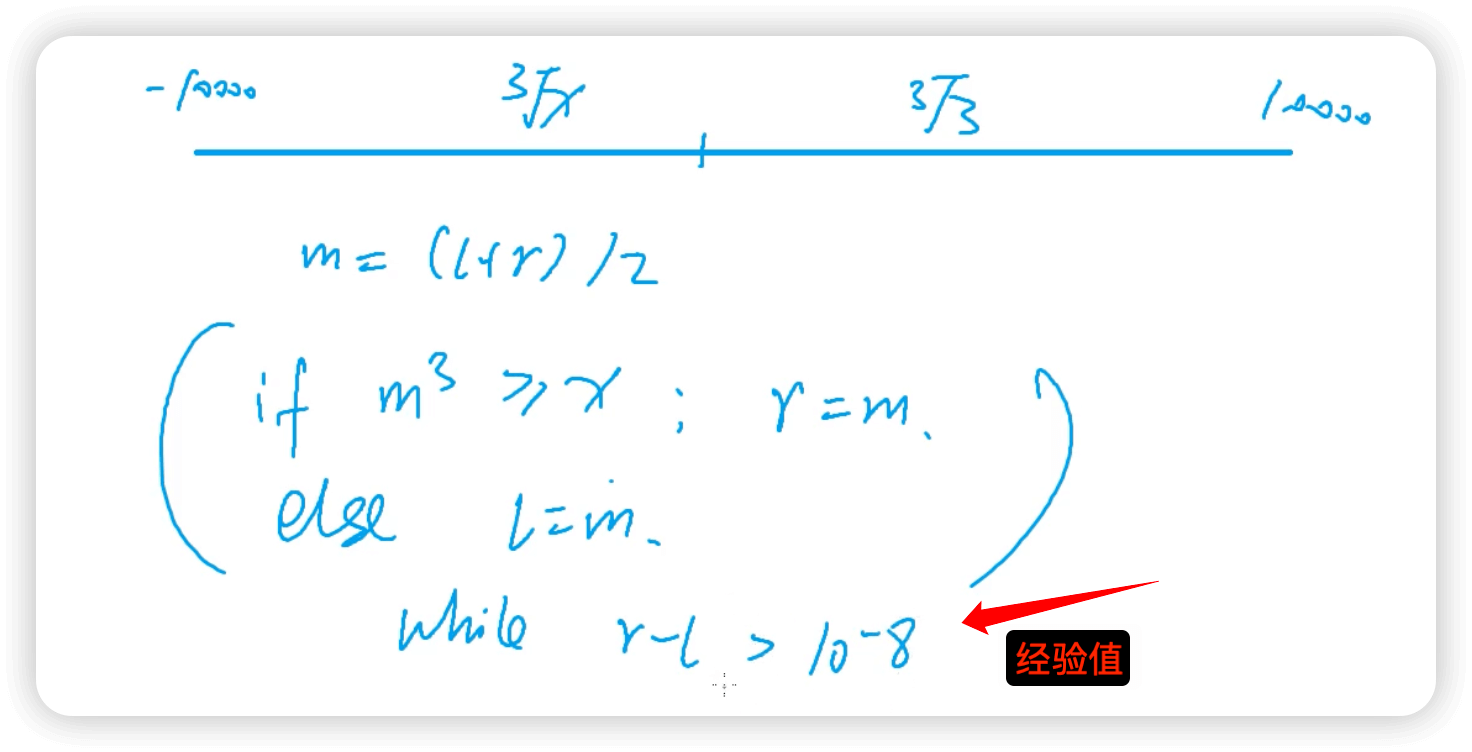 -10000 ³√x ³√3 10000
m = (l+r)/2
if m³ ≥ x ; r=m.
else l=m.
while r-l > 10⁻⁸
经验值